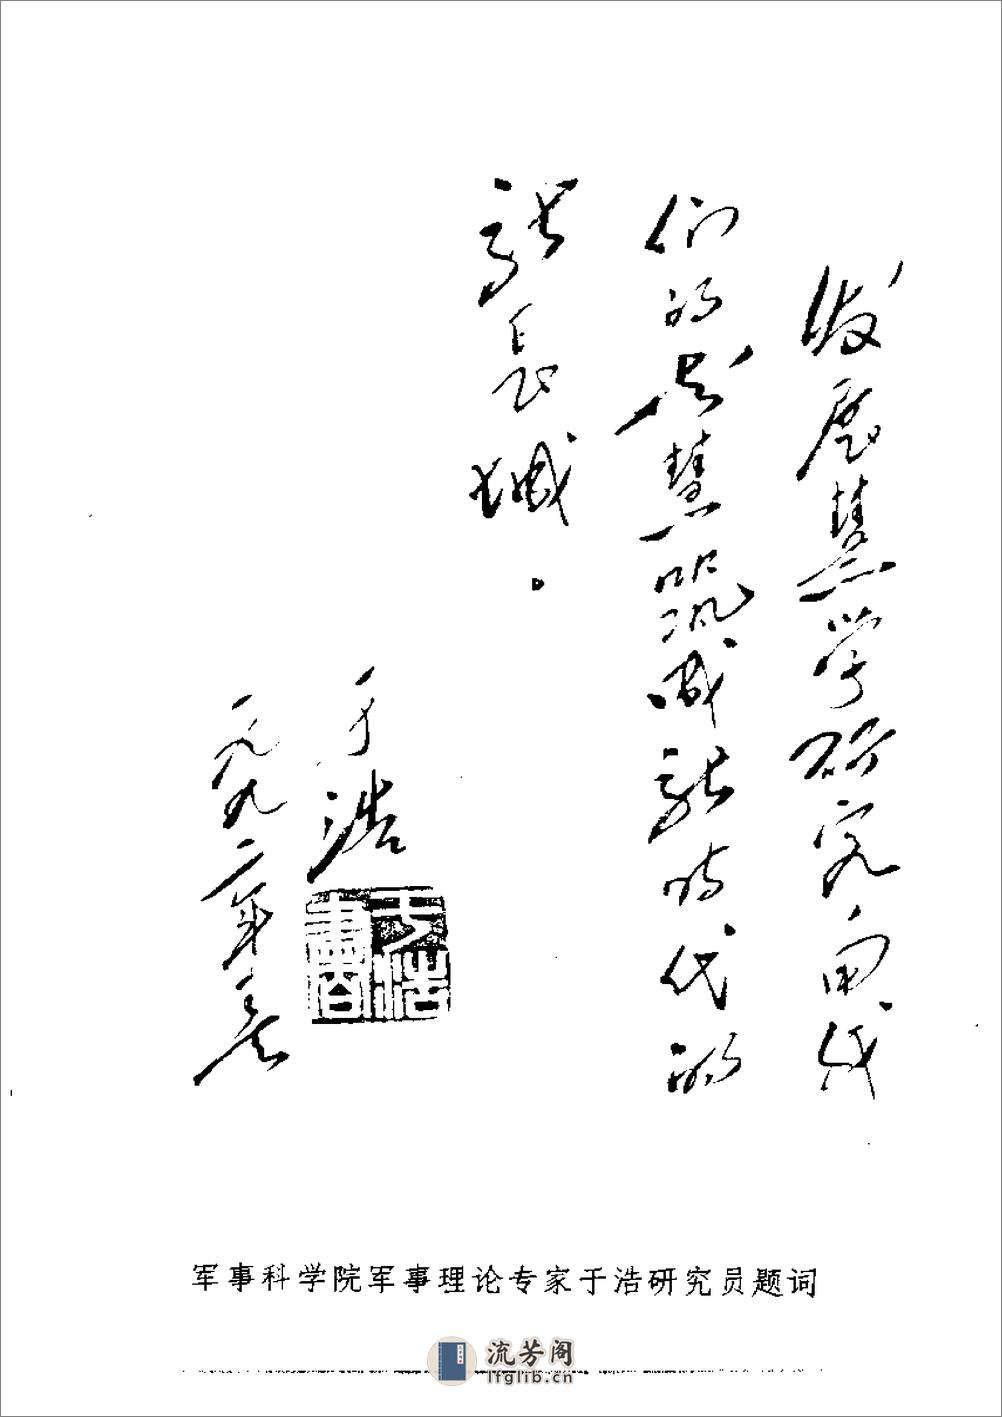 发展慧学研究，用我
们的智慧筑成新时代的
新长城。
于浩
一九九二年春
于浩
书
军事科学院军事理论专家于浩研究员题词
流芳阁
lfglib.cn